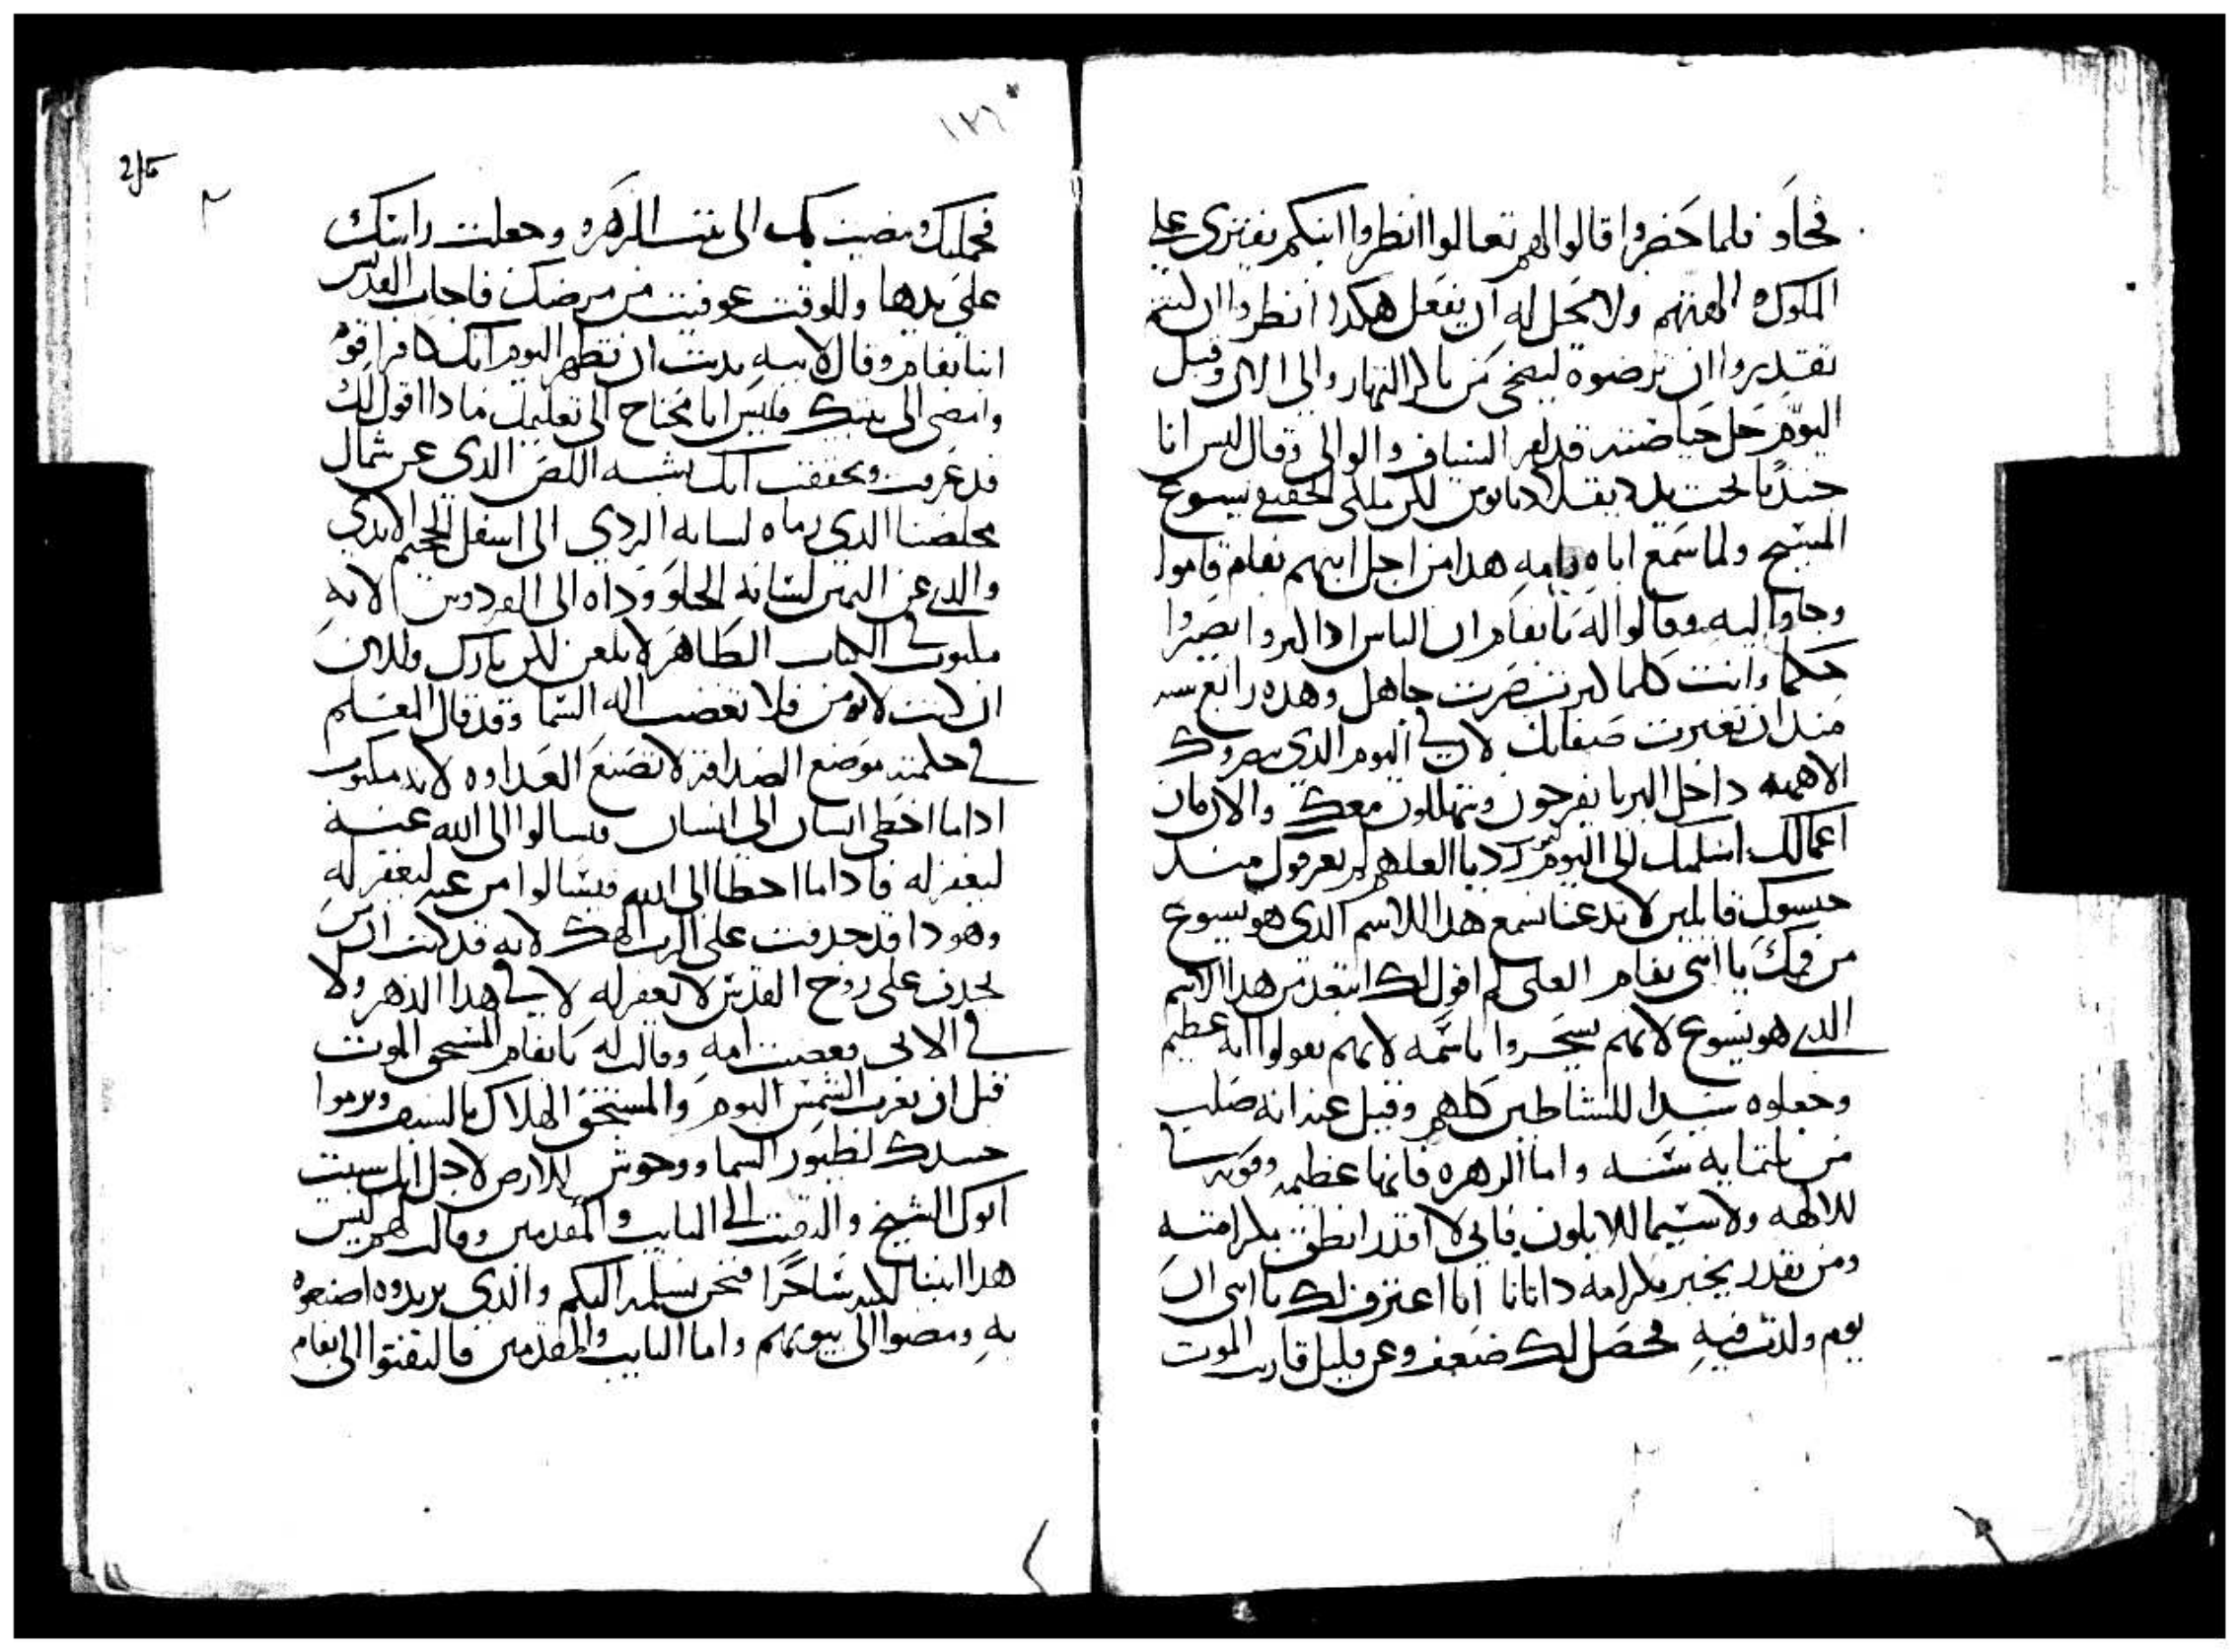 فجاو فلما حضروا قالوا لهم تعالوا انظروا ابنكم يفترى على
الملوك والهتهم ولا يحل له ان يفعل هكدا انظروا ان كنتم
تقديروا ان ترضوه ليضحى من باكر النهار والى الان وقبل
اليوم حل حياصته قدام السياف والوالى وقال ليس انا
جنديا تحت يد ديقلاديانوس لكن ملكى الحقيقى يسوع
المسيح ولما سمع اباه وامه هدا من اجل ابنهم بفام قاموا
وجاوا اليه وقالوا له يا بفام ان الناس ادا كبروا يصيروا
حكما وانت كلما كبرت صرت جاهل وهده رابع سنه
مند ان تغيرت صفاتك لان فى اليوم الدي
الالهه داخل البربا يفرحون ويتهللون معك والان مان
اعمالك اسلمتك الى اليوم
فالمين لا تدعنا نسمع هدا الاسم الدى هو يسوع
من فمك يا ابنى بفام العلى لم اقول لك ابتعد من هدا الاسم
الدي هو يسوع لانهم يسحروا باسمه لانهم يقولوا انه عظيم
وجعلوه سيدا للشياطين كلهم وقيل عنه انه صلب
من تلتمايه سنه واما الزهره فانها عظيمه
للالهه ولا سيما للابلون فانى لا اقدر انطق بكرامته
ومن يقدر يخبر بكرامه داتانا انا اعترف لك يا ابنى ان
يوم ولدت فيه حصل لك ضعف وعن قليل قاربت الموت
٢
١٢٦
215
فحملتك ومضيت بك الى بيت الزهره وجعلت راسك
على يدها وللوقت عوفيت من مرضك فاجاب القديس
انبا بفام وقال لابيه بدبت ان تظهر اليوم انك كافرا قوم
وامضى الى بيتك فليس انا محتاج الى تعليمك مادا اقول لك
قد عرفت وتحققت انك تشبه اللص الدى عن شمال
مخلصنا الدي رماه لسانه الردي الى اسفل الجحيم الابدي
والدي عن اليمين لسانه الحلو وداه الى الفردوس لانه
مكتوب فى الكتاب الطاهر لا تلعن لكن بارك والان
ان كنت لا تومن فلا تغضب اله السما وقد قال المعلم
فى حكمته موضع الصداقه لا تصنع العداوه لانه مكتوب
ادا ما اخطى انسان الى انسان فيسالوا الى الله عنه
ليغفر له فادا ما اخطا الى الله فيسالوا من عنه ليغفر له
وهودا قد جدفت على الرب الهك لانه قد كتب ان من
يجدف على روح القدس لا يغفر له لا فى هدا الدهر ولا
فى الاتى فغضبت امه وقالت له يا بفام المستحق الموت
قبل ان تغرب الشمس اليوم والمستحق الهلاك بالسيف ويرموا
جسدك لطيور السما ووحوش الارض لاجل انك سبيت
ابوك الشيخ والتفتت الى النايب والمقدمين وقالت لهم ليس
هدا ابننا لكنه ساحرا فنحن نسلمه اليكم والدي يريدوه اصنعوه
به ومضوا الى بيوتهم واما النايب والمقدمين فالتفتوا الى بفام